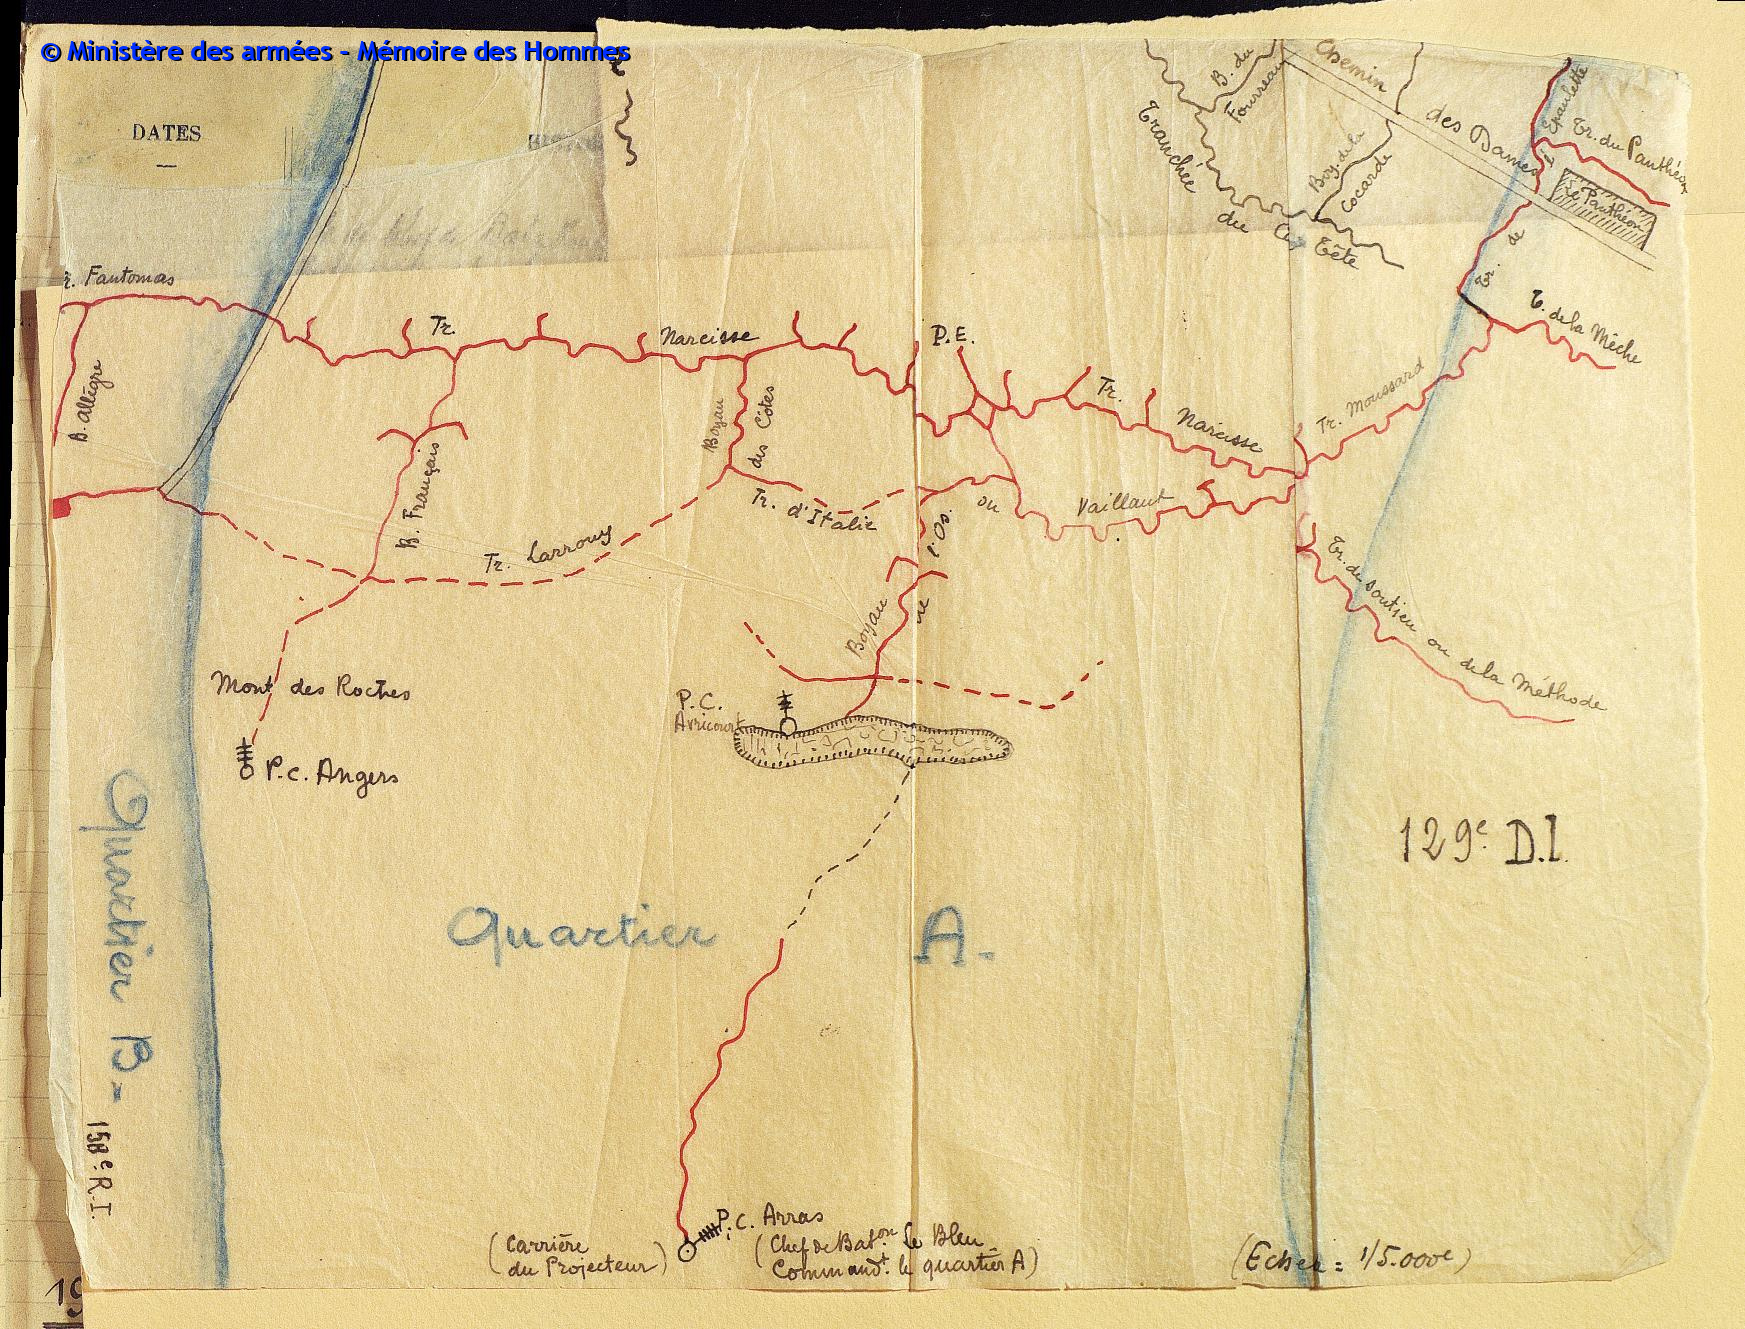 © Ministère des armées - Mémoire des Hommes
DATES
Chemin des Dames
B. du Fourreau
Tranchée du Casse Tête
Boy. de la Cocarde
Tr. de l'Epaulette
Tr. du Panthéon
Le Panthéon
Tr. Fantomas
B. Allègre
Tr. Narcisse
P.E.
Tr. Narcisse
Tr. Moussard
T. de la Mèche
B. Français
Boyau des Côtes
Tr. d'Italie
ou Vaillant
Tr. Larrouy
Boyau de l'Os.
Tr. de soutien ou de la Méthode
Mont des Roches
P.C. Angers
P.C.
Avricourt
129e. D.I.
Quartier A.
Quartier B -
158e. R.I.
P.C. Arras
(Carrière
du Projecteur)
(Chef de Baton Le Bleu
Commandt. le quartier A)
(Echel = 1/5.000e)
19